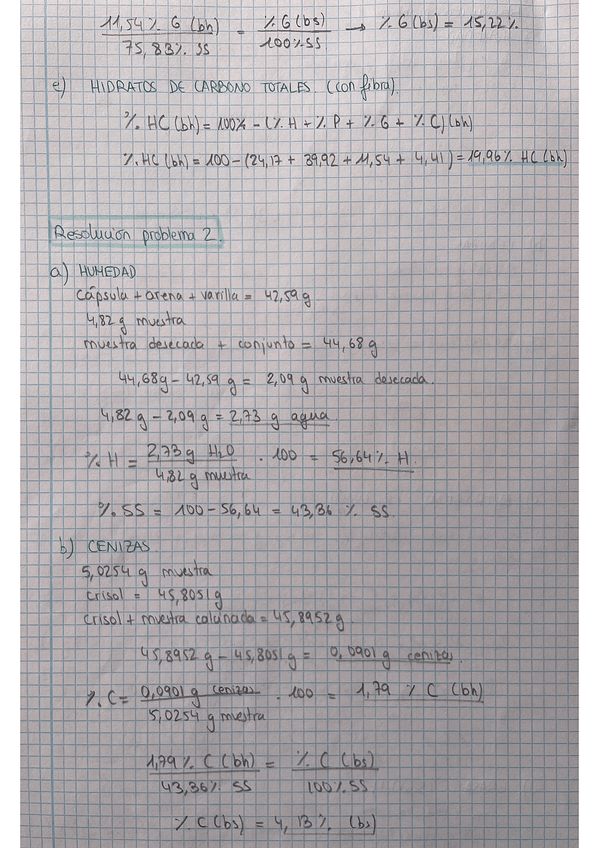 11,54 % G (bh) / 75,83% SS = % G (bs) / 100% SS → % G (bs) = 15,22 %
e) HIDRATOS DE CARBONO TOTALES (con fibra).
% HC (bh) = 100% - (% H + % P + % G + % C) (bh)
% HC (bh) = 100 - (24,17 + 39,92 + 11,54 + 4,41) = 19,96 % HC (bh)
Resolución problema 2.
a) HUMEDAD
cápsula + arena + varilla = 42,59 g
4,82 g muestra
muestra desecada + conjunto = 44,68 g
44,68g - 42,59 g = 2,09 g muestra desecada.
4,82 g - 2,09 g = 2,73 g agua
% H = 2,73 g H2O / 4,82 g muestra · 100 = 56,64 % H.
% SS = 100 - 56,64 = 43,36 % SS.
b) CENIZAS
5,0254 g muestra
crisol = 45,8051 g
crisol + muestra calcinada = 45,8952 g.
45,8952 g - 45,8051 g = 0,0901 g cenizas.
% C = 0,0901 g cenizas / 5,0254 g muestra · 100 = 1,79 % C (bh)
1,79 % C (bh) / 43,36% SS = % C (bs) / 100 % SS
% C (bs) = 4,13 % (bs)